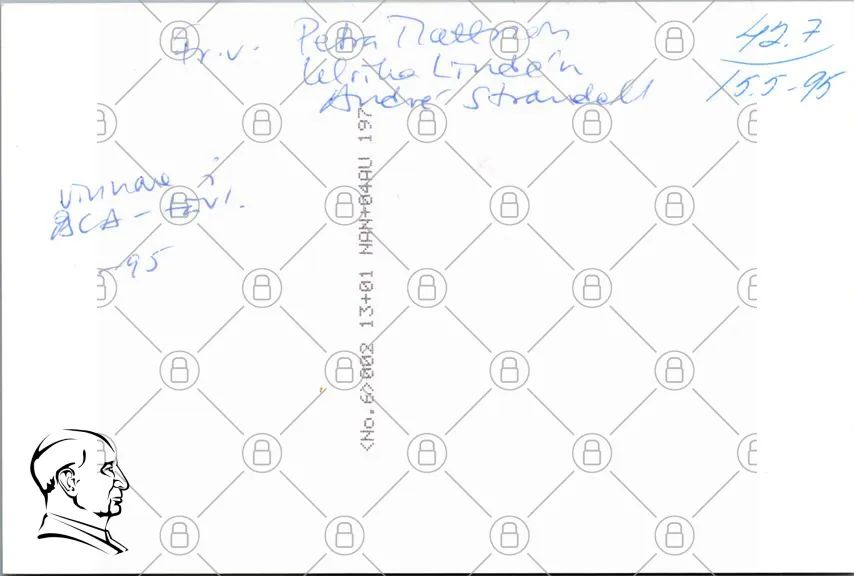 fr.v. Petra Mattsson
Ulrika Lindén
André Strandell
42.7
15.5-95
vinnare i
ICA-tävl.
-95
<No.6>002 13+01 NAN+04AU 197